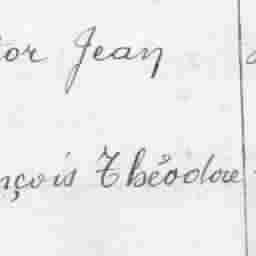 or Jean
nçois Théodore